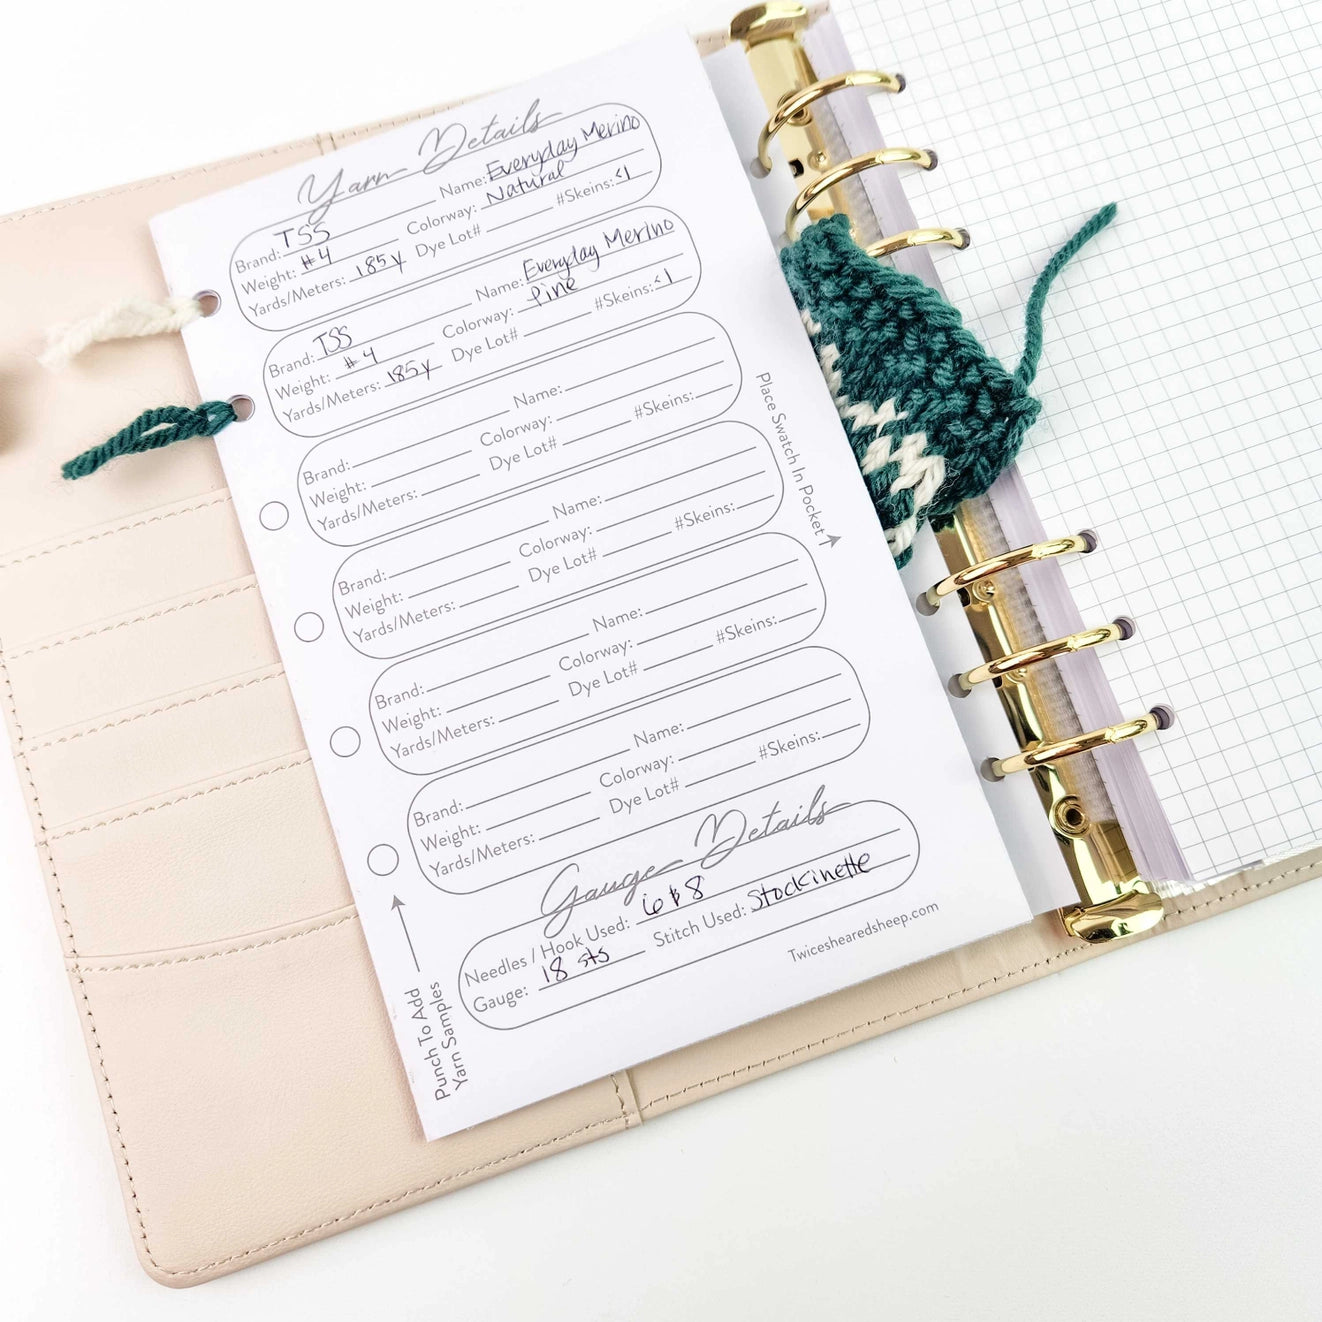 Yarn Details
Brand: TSS Name: Everyday Merino
Weight: #4 Colorway: Natural
Yards/Meters: 185y Dye Lot# #Skeins: <1
Brand: TSS Name: Everyday Merino
Weight: #4 Colorway: Pine
Yards/Meters: 185y Dye Lot# #Skeins: <1
Brand: Name:
Weight: Colorway:
Yards/Meters: Dye Lot# #Skeins:
Brand: Name:
Weight: Colorway:
Yards/Meters: Dye Lot# #Skeins:
Brand: Name:
Weight: Colorway:
Yards/Meters: Dye Lot# #Skeins:
Brand: Name:
Weight: Colorway:
Yards/Meters: Dye Lot# #Skeins:
Place Swatch In Pocket
Gauge Details
Needles / Hook Used: 6 & 8
Gauge: 18 sts Stitch Used: Stockinette
Twiceshearedsheep.com
Punch To Add
Yarn Samples